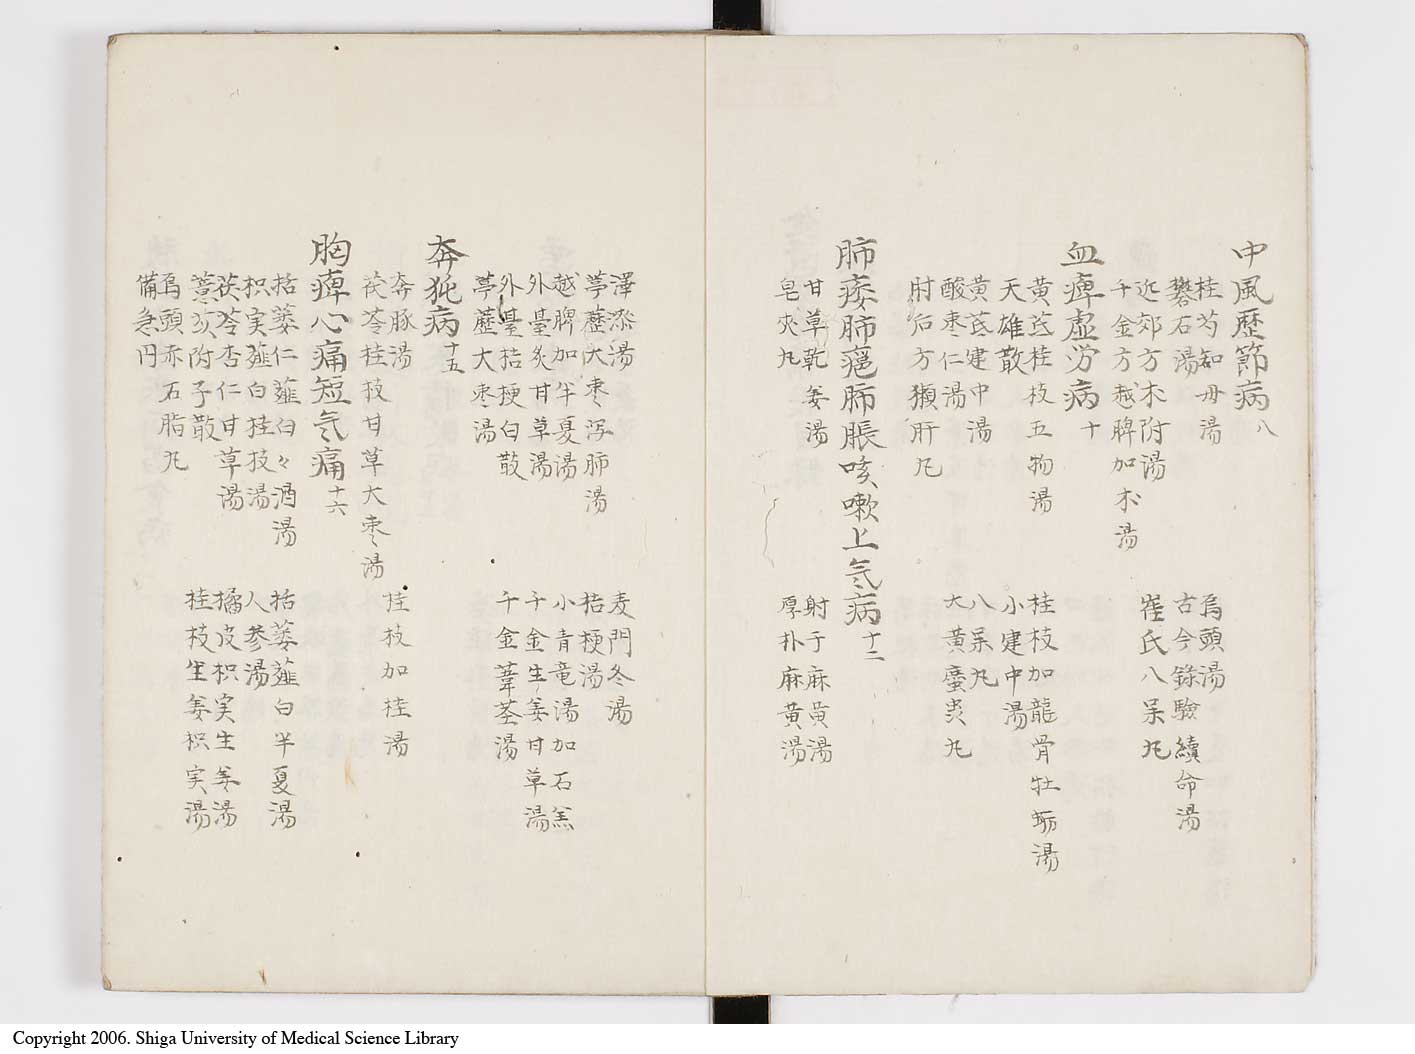 中風歴節病八
桂芍知母湯
烏頭湯
礬石湯
古今録驗續命湯
近郊方朮附湯
崔氏八味丸
千金方越脾加朮湯
血痺虚労病十
黄芪桂枝五物湯
桂枝加龍骨牡蛎湯
天雄散
小建中湯
黄芪建中湯
八味丸
酸枣仁湯
大黄䗪虫丸
肘后方獺肝丸
肺痿肺癰肺脹咳嗽上気病十二
甘草乾姜湯
射干麻黄湯
皂夾丸
厚朴麻黄湯
澤漆湯
麦門冬湯
葶藶大枣泻肺湯
桔梗湯
越脾加半夏湯
小青竜湯加石羔
外臺炙甘草湯
千金生姜甘草湯
外臺桔梗白散
千金葦茎湯
葶藶大枣湯
奔㹠病十五
奔豚湯
桂枝加桂湯
茯苓桂枝甘草大枣湯
胸痺心痛短气痛十六
括蒌仁薤白々酒湯
括蒌薤白半夏湯
枳実薤白桂枝湯
人参湯
茯苓杏仁甘草湯
橘皮枳実生姜湯
薏苡附子散
桂枝生姜枳実湯
烏頭赤石脂丸
備急円
Copyright 2006. Shiga University of Medical Science Library